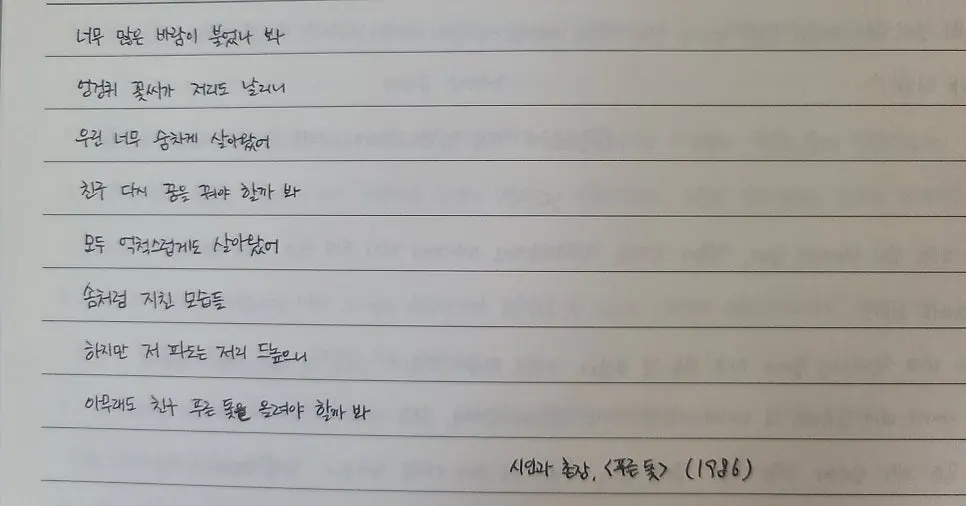 너무 많은 바람이 불었나 봐
엉겅퀴 꽃씨가 저리도 날리니
우린 너무 숨차게 살아왔어
친구 다시 꿈을 꿔야 할까 봐
모두 억척스럽게도 살아왔어
솜처럼 지친 모습들
하지만 저 파도는 저리 드높으니
아무래도 친구 푸른 돛을 올려야 할까 봐
시인과 촌장, <푸른 돛> (1986)